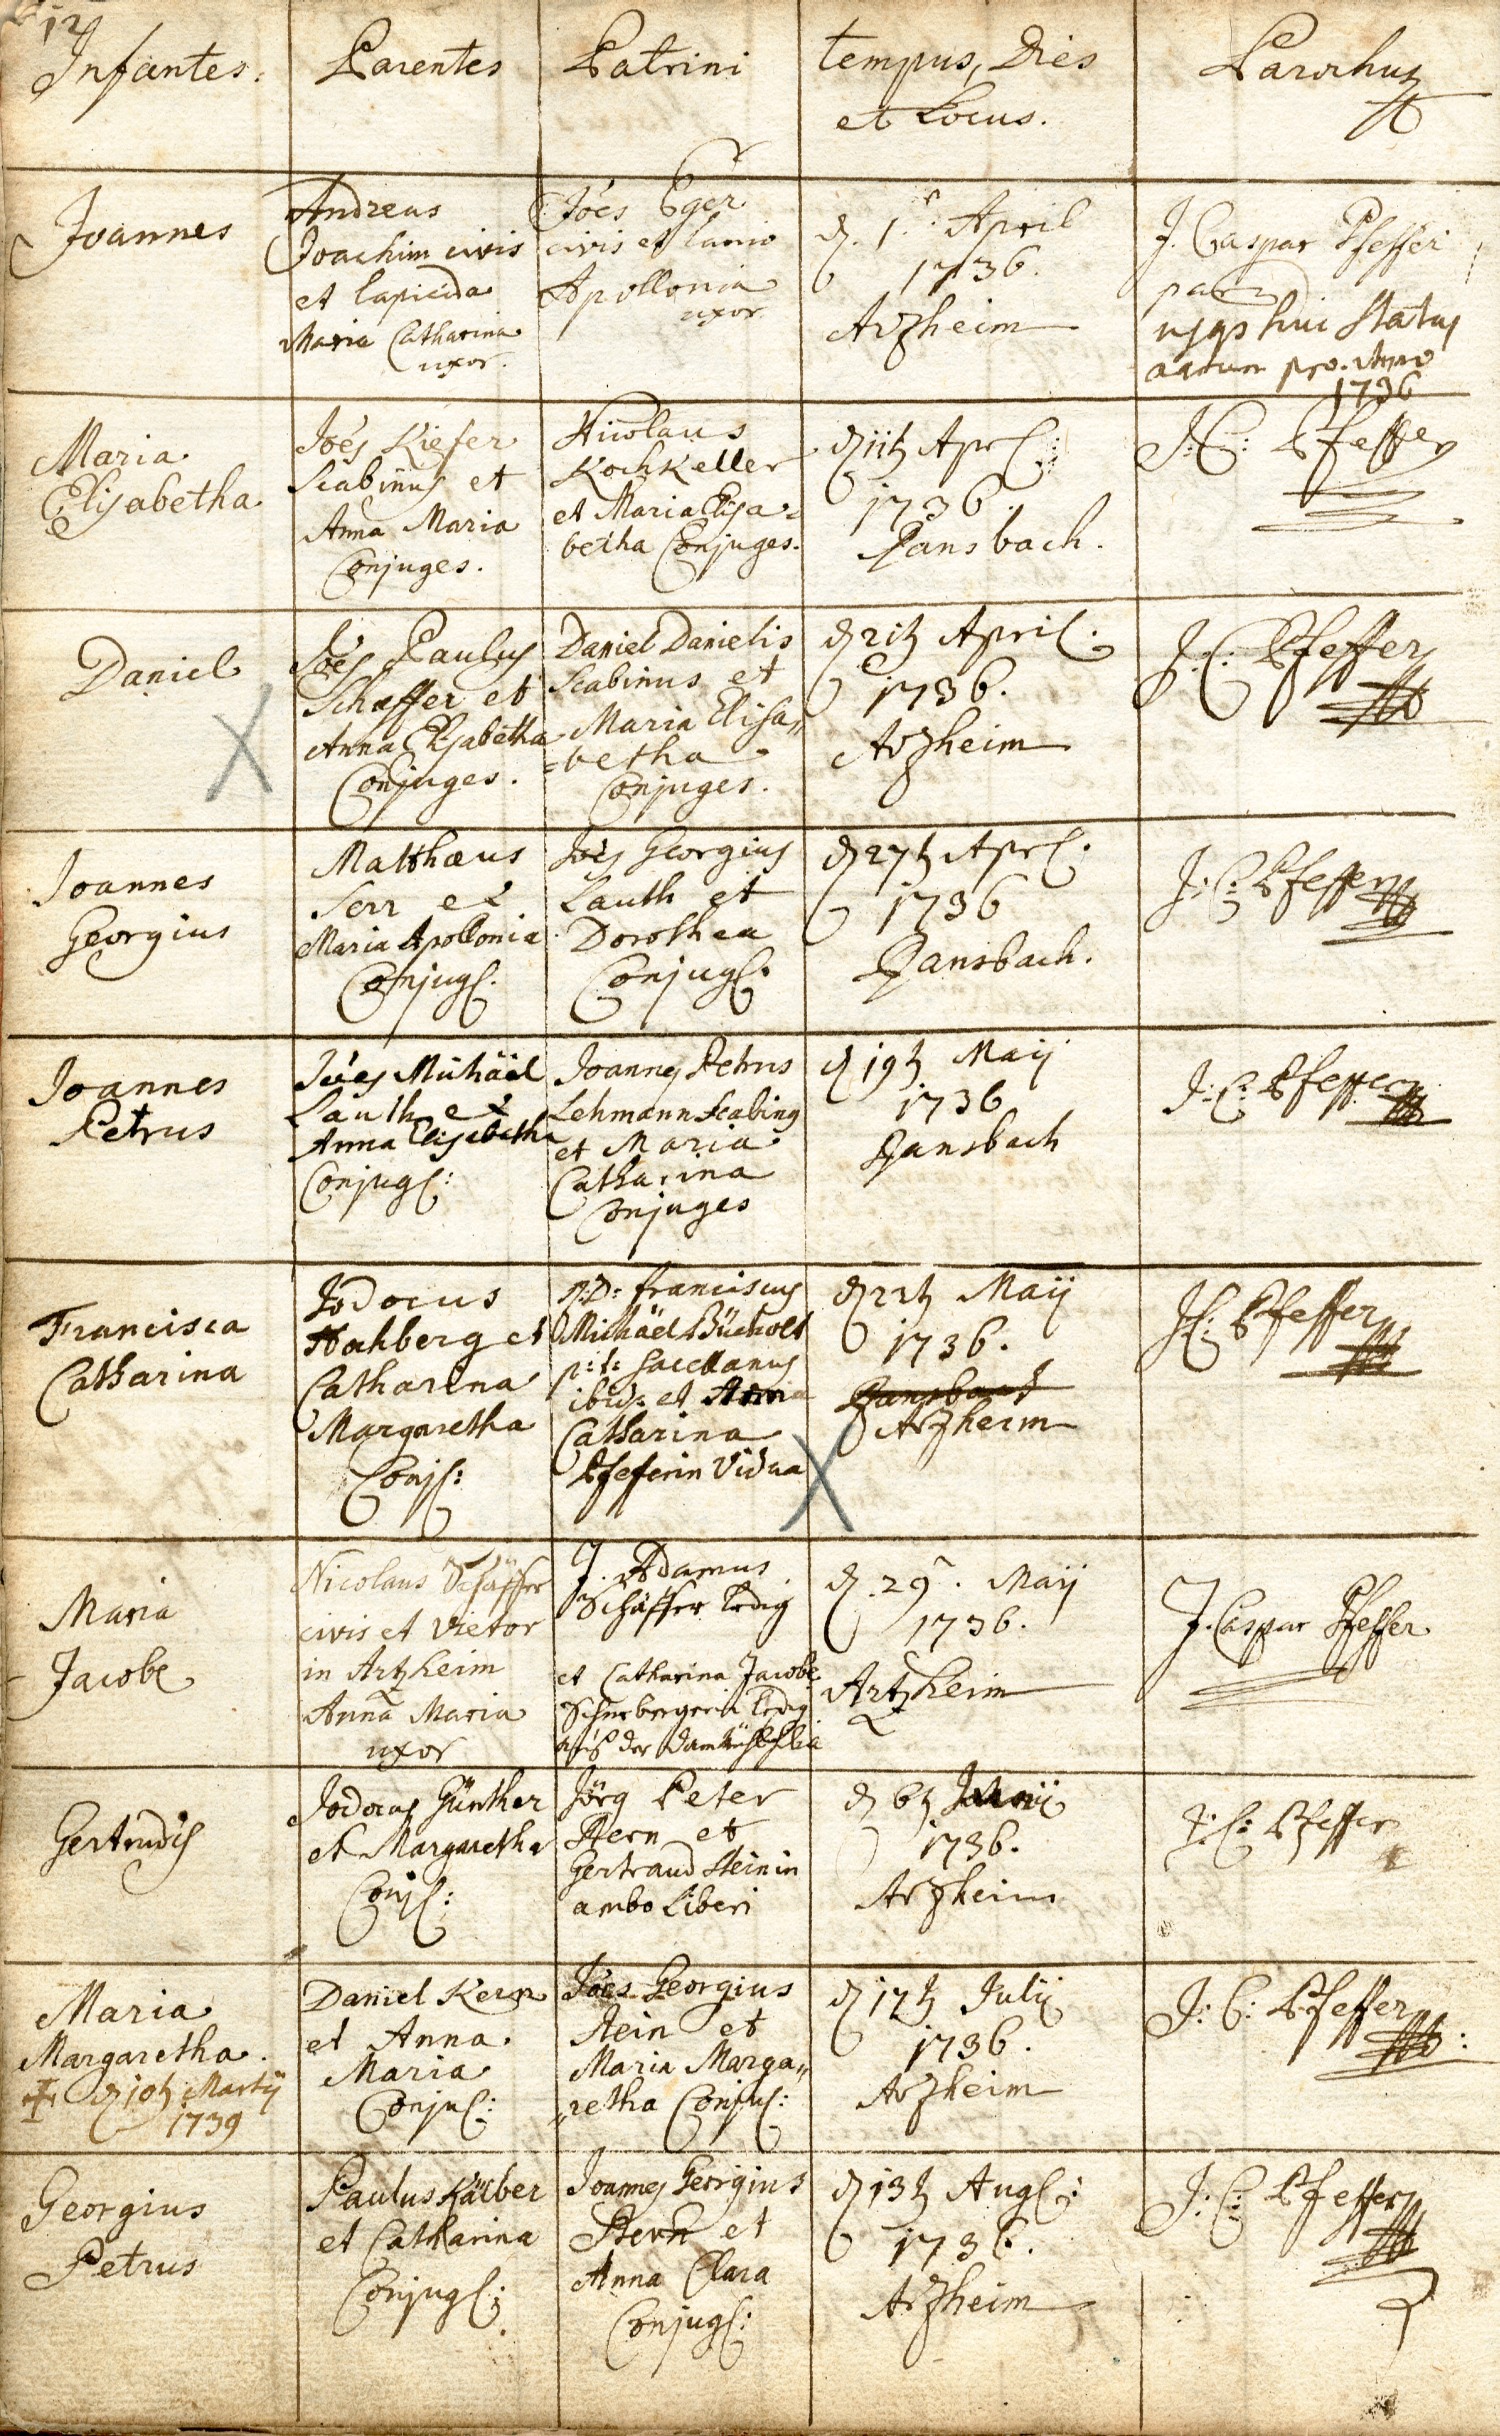 12
Infantes.
Parentes
Patrini
tempus, Dies
et Locus.
Parochus
Joannes
Andreas
Joachim civis
et lapicida
Maria Catharina
uxor.
Joes Eger
civis et lanio
Apollonia
uxor
d. 1. April
1736.
Arzheim
J. Caspar Pfeffer
hui Status
pro. Anno
1736
Maria
Elisabetha
Joes Kiefer
Scabinus et
Anna Maria
Conjuges.
Nicolaus
Kochkeller
et Maria Elisa-
betha Conjuges.
d 11t Aprl:
1736.
Ransbach.
J: C: Pfeffer
Daniel
Joes Paulus
Schæffer et
Anna Elisabetha
Conjuges.
Daniel Danielis
Scabinus et
Maria Elisa„
=betha
Conjuges.
d 21t April.
1736.
Arzheim
J: C: Pfeffer
Joannes
Georgius
Matthæus
Serr et
Maria Apollonia
Conjug:
Joes Georgius
Lauth et
Dorothea
Conjug:
d 27t Aprl:
1736
Ransbach.
J: C: Pfeffer
Joannes
Petrus
Joes Michäel
Lauth et
Anna Elisabetha
Conjug:
Joannes Petrus
Lehmann Scabinus
et Maria
Catharina
Conjuges
d 19t Maij
1736
Ransbach
J: C: Pfeffer
Francisca
Catharina
Jodocus
Hochberg et
Catharina
Margaretha
Conj:
franciscus
Michäel Bücholt
p: t: Sacellanus
ibid: et Anna
Catharina
Pfefferin Vidua
d 22t Maij
1736.
Ransbach
Arzheim
J C: Pfeffer
Maria
Jacobe
Nicolaus Schäffer
civis et vietor
in Artzheim
Anna Maria
uxor
J. Adamus
Schäffer ledig
et Catharina Jacobe
ledig
auß der
d. 29. Maij
1736.
Artzheim
J. Caspar Pfeffer
Gertrudis
Jodocus Günther
et Margaretha
Conj:
Jörg Peter
Stern et
Gertraud Steinin
ambo Liberi
d 6t
1736.
Arzheim
J: C: Pfeffer
Maria
Margaretha.
d 10t Martij
1739
Daniel Kern
et Anna
Maria
Conju:
Joes Georgius
Stein et
Maria Marga„
„retha Conju:
d 17t Julij
1736.
Arzheim
J: C: Pfeffer
Georgius
Petrus
Paulus Kälber
et Catharina
Conjug:
Joannes Georgius
Stern et
Anna Clara
Conjug:
d 13t Aug:
1736.
Arzheim
J: C: Pfeffer